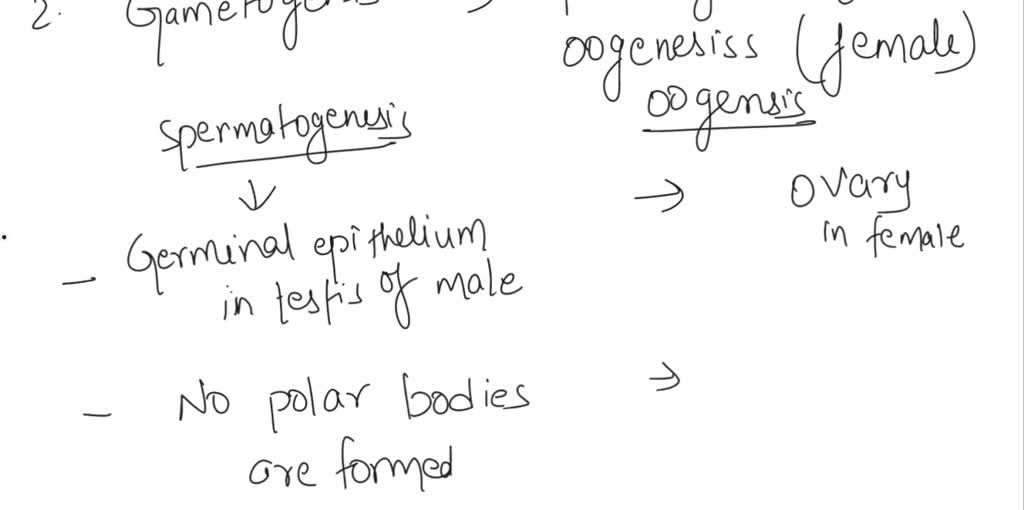 2. Gametogenesis →
oogenesiss (female)
spermatogenesis
oogensis
↓
- Germinal epithelium
in testis of male
→ Ovary
in female
- No polar bodies
are formed
→